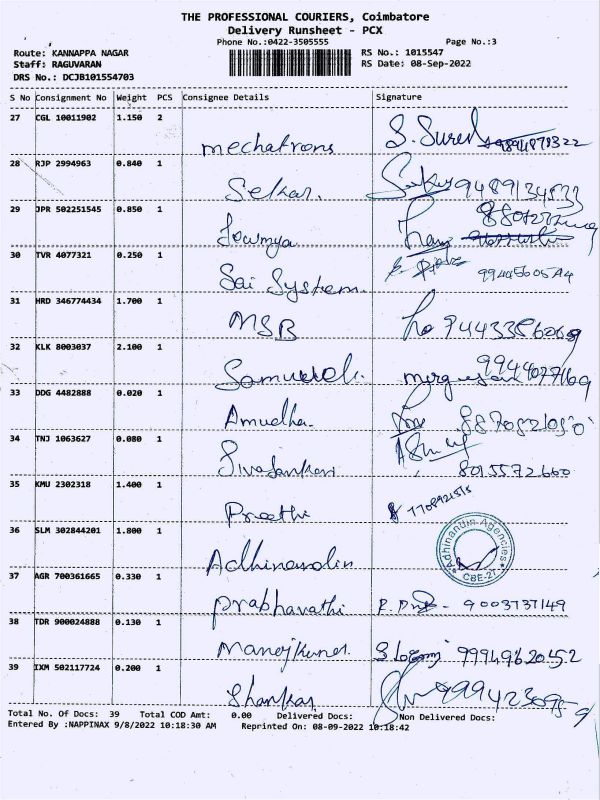 THE PROFESSIONAL COURIERS, Coimbatore
Delivery Runsheet - PCX
Phone No.:0422-3505555 Page No.:3
Route: KANNAPPA NAGAR RS No.: 1015547
Staff: RAGUVARAN RS Date: 08-Sep-2022
DRS No.: DCJB101554703
S No Consignment No Weight PCS Consignee Details Signature
27 CGL 10011902 1.150 2
mechatrons S. Suresh
28 RJP 2994963 0.840 1
Sekar. 9489134533
29 JPR 502251545 0.850 1
Sowmya
30 TVR 4077321 0.250 1
Sai System.
31 HRD 346774434 1.700 1
MSB
32 KLK 8003037 2.100 1
9944077169
murugesan
33 DDG 4482888 0.020 1
Amudha.
34 TNJ 1063627 0.080 1
Sivasankari 8015572660
35 KMU 2302318 1.400 1
Preethi 7708921515
36 SLM 302844201 1.800 1
Adhinandin
Adhinandin Agencies
CBE-27
37 AGR 700361665 0.330 1
Prabhavathi - 9003737149
38 TDR 900024888 0.130 1
Manojkumar 9994962052
39 IXM 502117724 0.200 1
Shankar
Total No. Of Docs: 39 Total COD Amt: 0.00 Delivered Docs: Non Delivered Docs:
Entered By :NAPPINAX 9/8/2022 10:18:30 AM Reprinted On: 08-09-2022 10:18:42